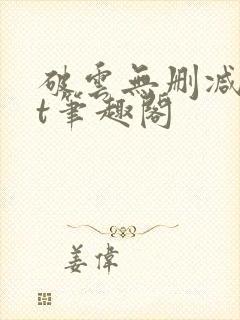 破雲無刪减
t筆趣閣
姜偉